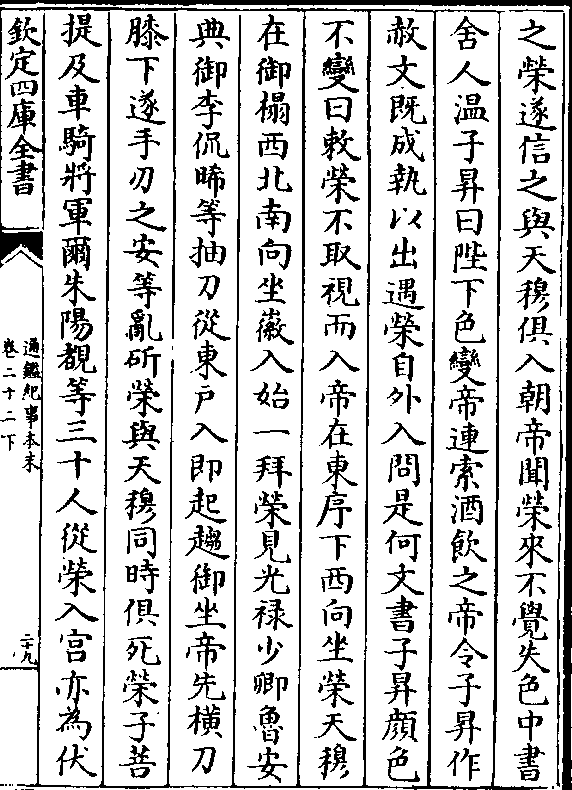 之榮遂信之與天穆俱入朝帝聞榮來不覺失色中書
舍人温子昇曰陛下色變帝連索酒飲之帝令子昇作
赦文既成執以出遇榮自外入問是何文書子昇顔色
不變曰敕榮不取視而入帝在東序下西向坐榮天穆
在御榻西北南向坐徽入始一拜榮見光禄少卿魯安
典御李侃晞等抽刀從東户入即起趨御坐帝先横刀
膝下遂手刃之安等亂斫榮與天穆同時俱死榮子菩
提及車騎將軍爾朱陽覩等三十人從榮入宫亦為伏
欽定四庫全書
通鑑紀事本末
卷二十二下
二十九